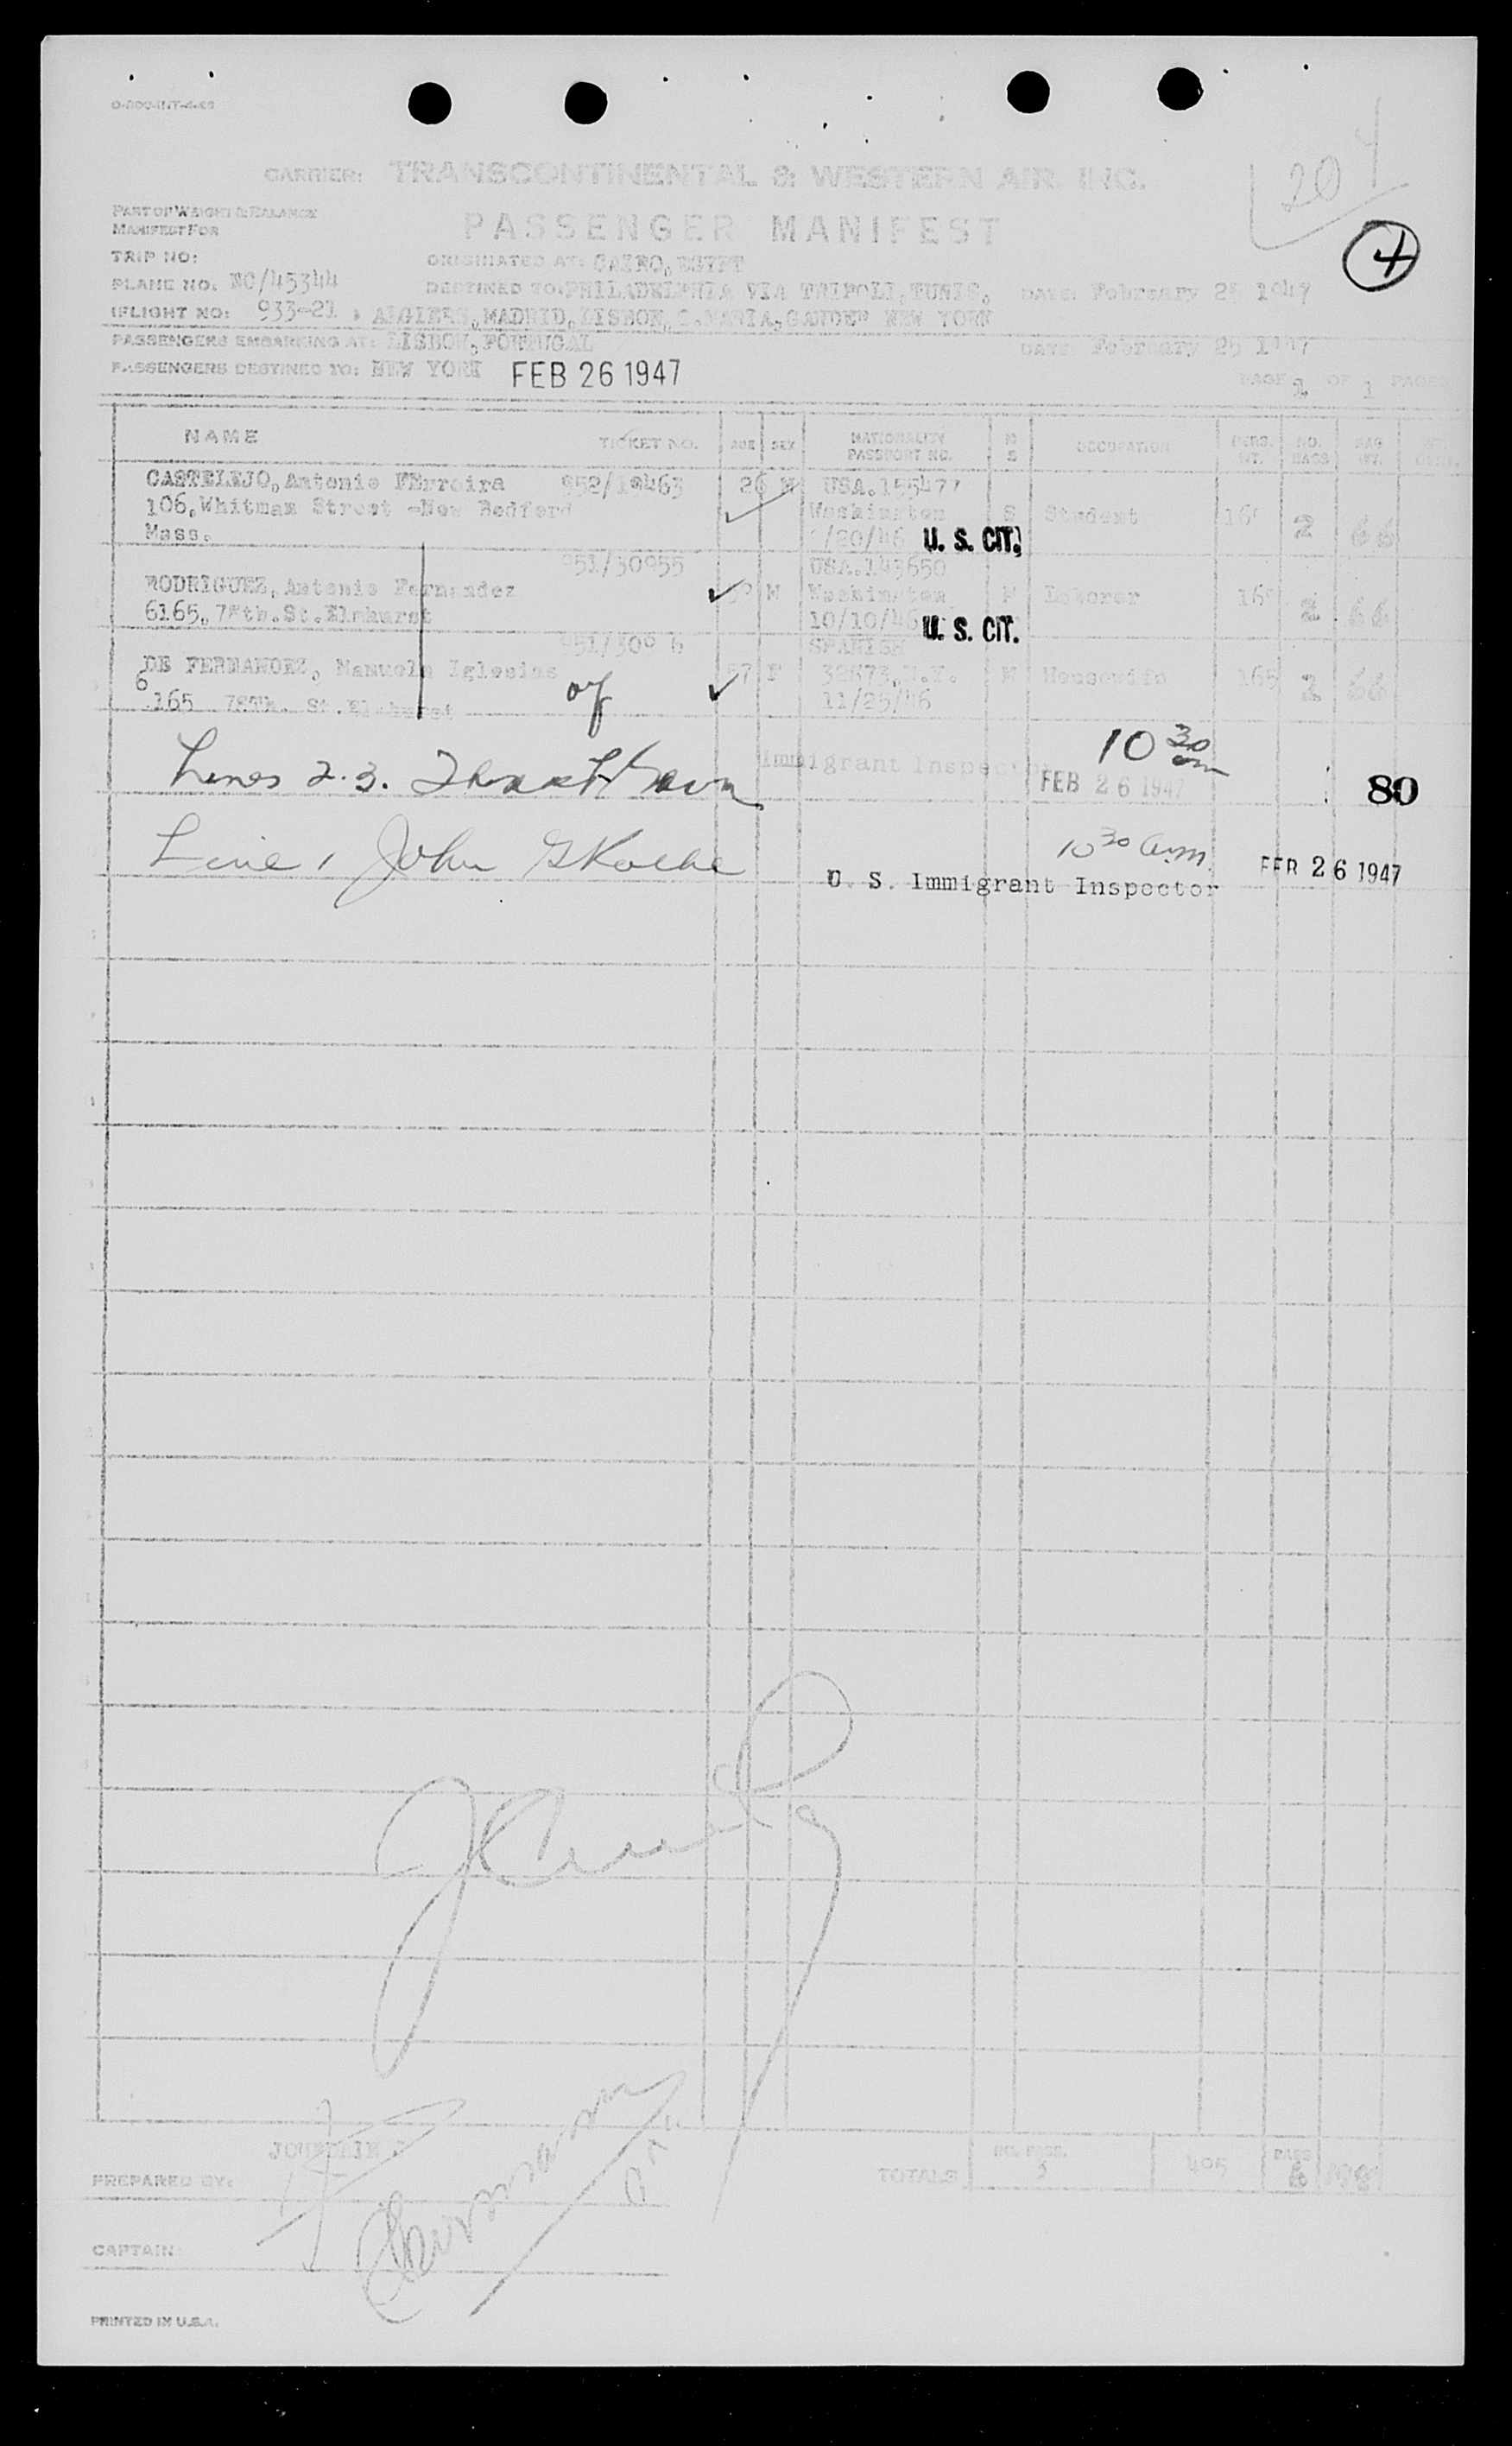 CARRIER: TRANSCONTINENTAL & WESTERN AIR. INC.
204
PART OF WEIGHT & BALANCE
MANIFEST FOR
PASSENGER MANIFEST
4
TRIP NO:
ORIGINATED AT: CAIRO, EGYPT
PLANE NO. NC/45344
DESTINED TO: PHILADELPHIA VIA TRIPOLI, TUNIS, DATE: February 25 1947
FLIGHT NO: 933-21 , ALGIERS, MADRID, LISBON, S.MARIA, GANDER NEW YORK
PASSENGERS EMBARKING AT: LISBON, PORTUGAL DATE February 25 1947
PASSENGERS DESTINED TO: NEW YORK FEB 26 1947
PAGE 1 OF 1 PAGES
NAME TICKET NO. AGE SEX NATIONALITY PASSPORT NO. M S OCCUPATION PERS. WT. NO. BAGS BAG WT.
CASTELEJO, Antonio FErreira 26 M USA.
106, Whitman Street -New Bedford Washington S Student 2 66
Mass. /20/46 U. S. CIT.
951/30955 USA.143650
RODRIGUEZ, Antonio Fernandez M Washington M Laborer 2 66
6165, 78th. St. Elmhurst 10/10/46 U. S. CIT.
SPANISH
DE FERNANDEZ, Manuela Iglesias 57 F 32873, N.Y. M Housewife 165 2 66
6165 78th. St. Elmhurst 11/25/46
Immigrant Inspector 10 30 am
Lines 2.3. FEB 26 1947 80
Line 1 John 10 30 am.
U. S. Immigrant Inspector FEB 26 1947
PREPARED BY:
TOTALS NO. PASS. 3 495 BAGS 6
CAPTAIN
PRINTED IN U.S.A.